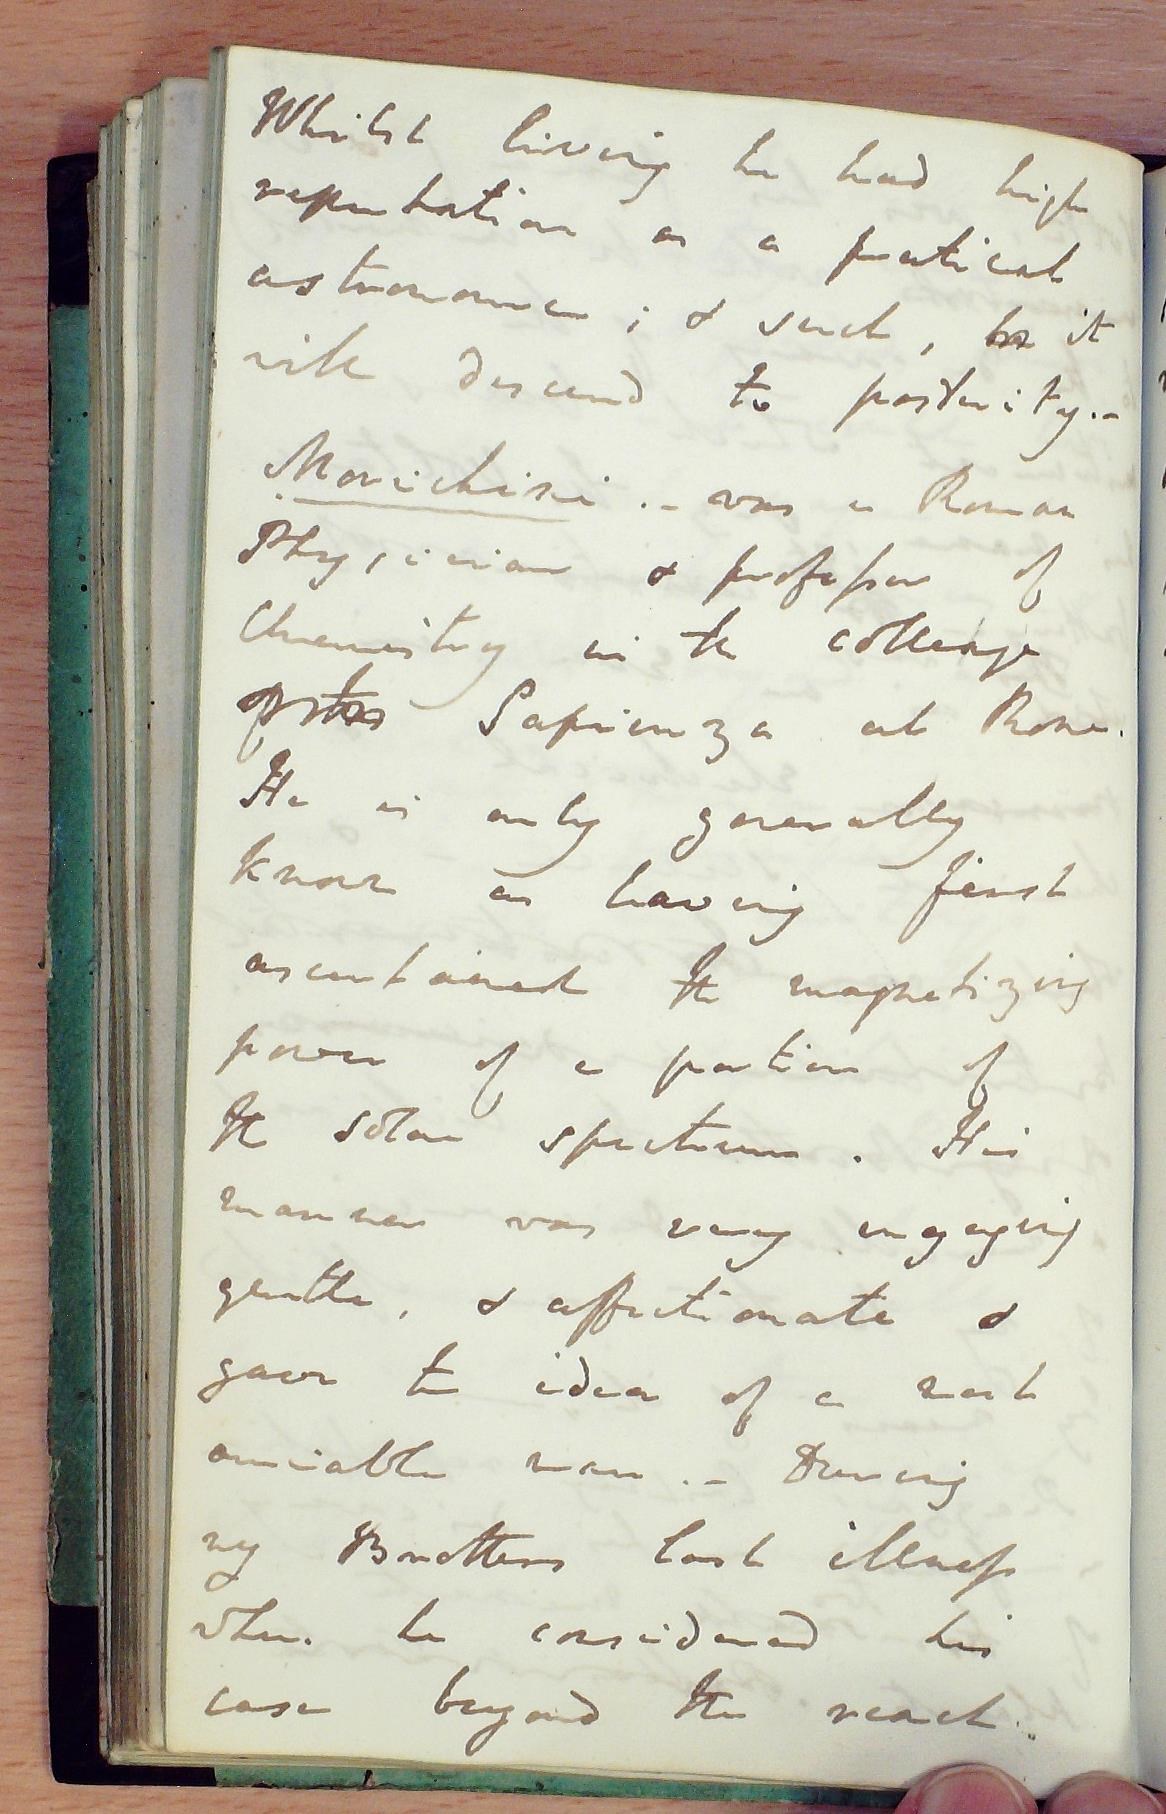 Whilst living he had high
reputation as a pratical
astronomer; & such, it
will descend to posterity.-
Morichini.- was a Roman
Physician & professor of
Chemistry in the colleage
of the Sapienza at Rome.
He is only generally
known as having first
ascertained the magnetizing
power of a portion of
the solar spectrum. His
manner was very engaging
gentle, & affectionate &
gave the idea of a most
amiable man.- During
my Brothers last illness
when he considered his
case beyond the reach